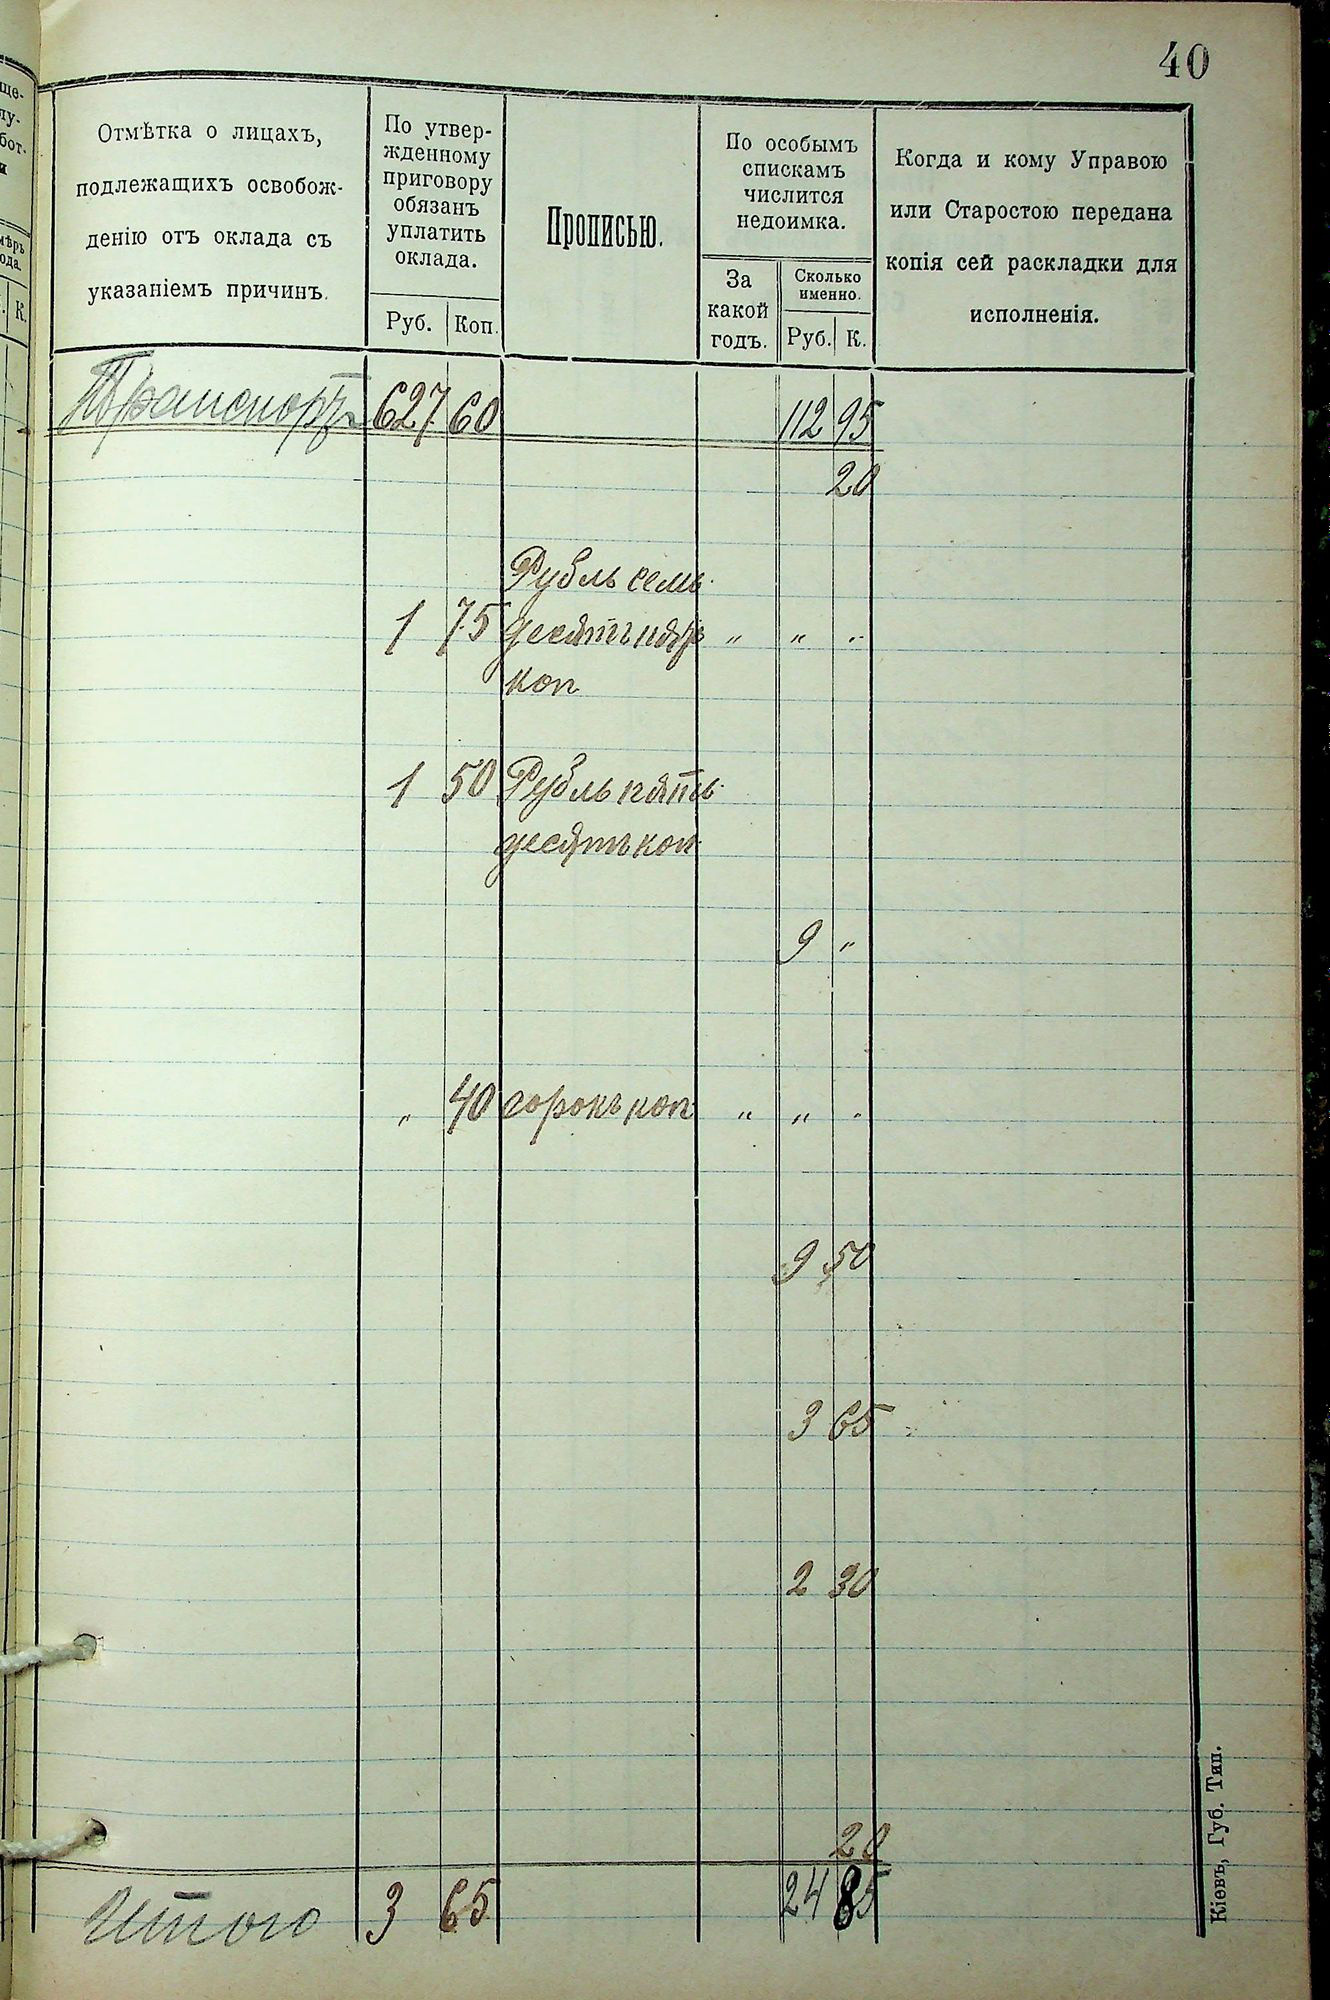 40
ще-
лу-
бот-
и
мѣръ
ода.
К.
Отмѣтка о лицахъ,
подлежащихъ освобож-
денію отъ оклада съ
указаніемъ причинъ.
По утвер-
жденному
приговору
обязанъ
уплатить
оклада.
Руб. Коп.
Прописью.
По особымъ
спискамъ
числится
недоимка.
За
какой
годъ.
Сколько
именно.
Руб. К.
Когда и кому Управою
или Старостою передана
копія сей раскладки для
исполненія.
Транспортъ 627 60 112 95
20
Рубль семь
1 75 десятъ пять " " "
коп
1 50 Рубль пять
десятъ коп
9 "
" 40 сорокъ коп " " "
9 50
3 65
2 30
20
Итого 3 65 24 85
Кіевъ, Губ. Тип.